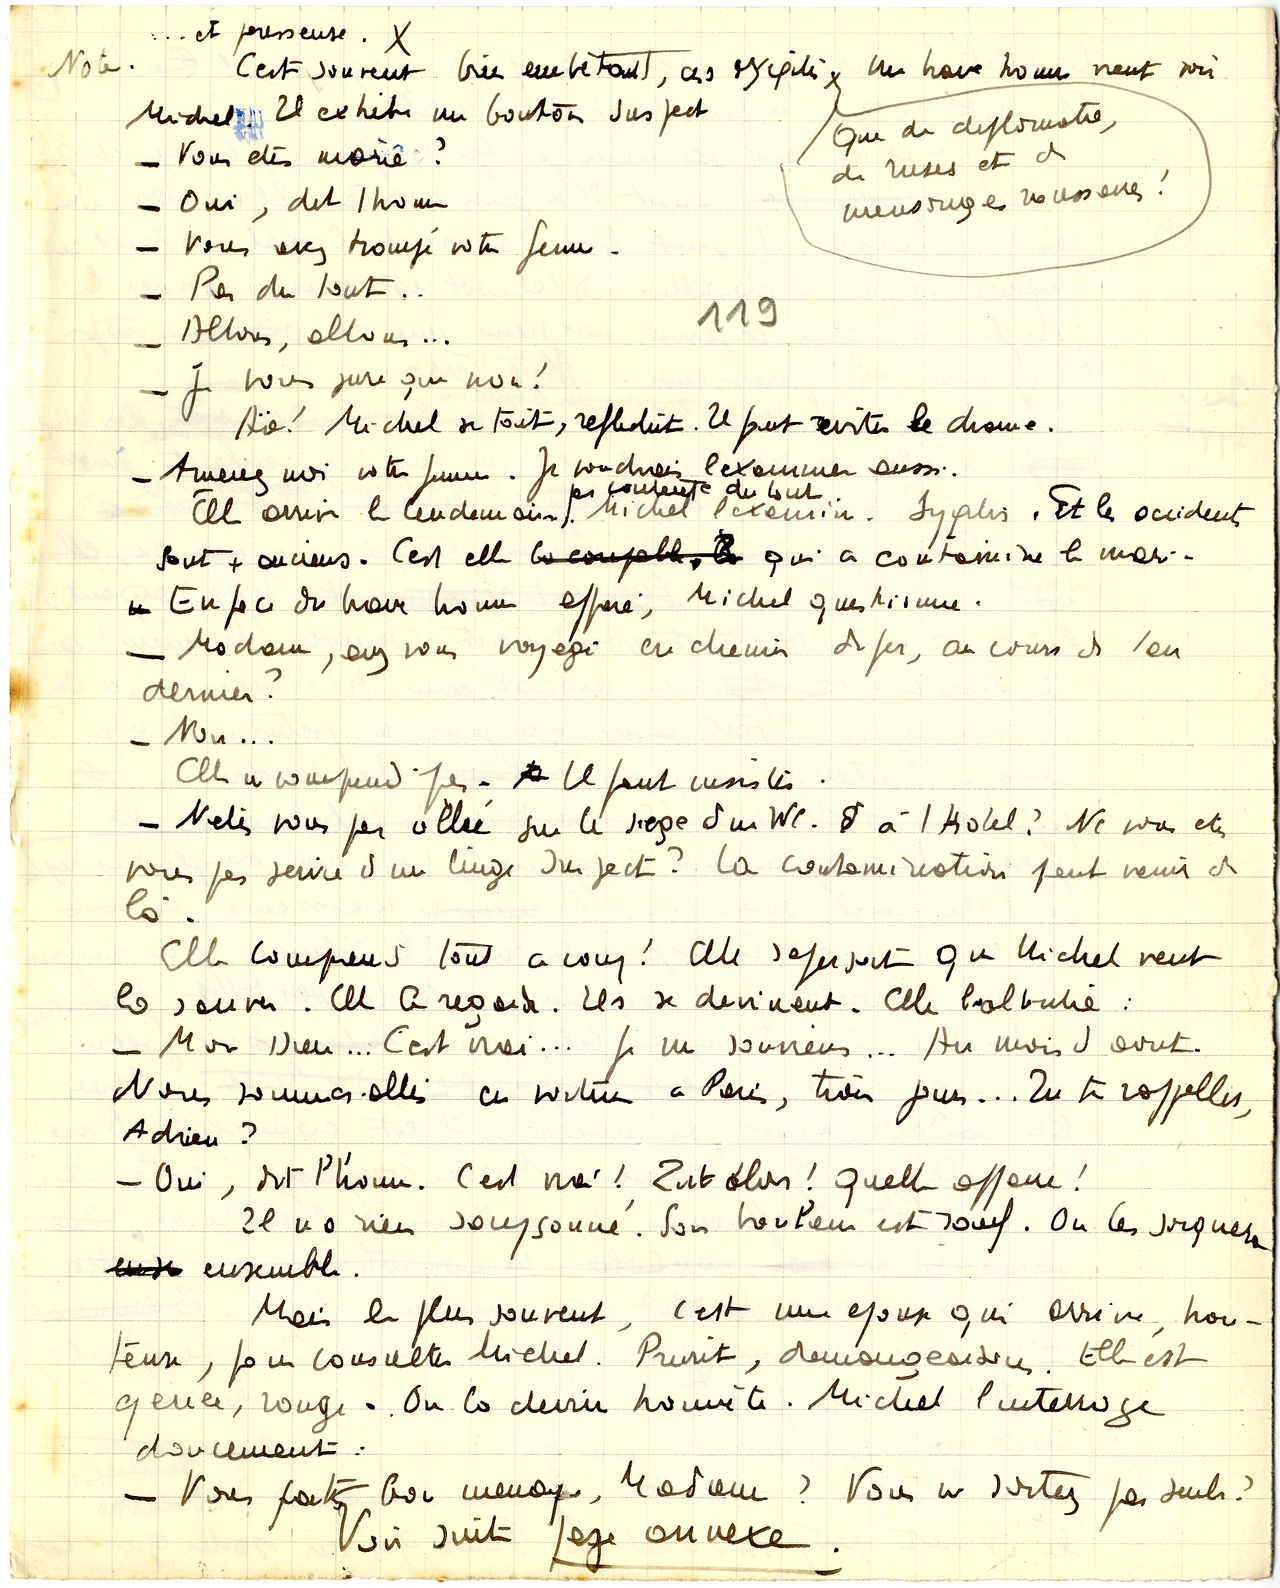 ... et presseuse. X
Note. C'est souvent bien embêtant, ces syphilis x Un brave homme vient voir
Michel. Il exhibe un bouton suspect
Que de diplomatie,
de ruses et de
mensonges nécessaires !
– Vous êtes marié ?
– Oui, dit l'homme
– Vous avez trompé votre femme.
– Pas du tout..
119
– Allons, allons...
– Je vous jure que non !
Aïe ! Michel se tait, réfléchit. Il faut éviter le drame.
– Amenez moi votre femme. Je voudrais l'examiner aussi.
pas contente du tout
Elle arrive le lendemain. Michel l'examine. Syphilis. Et les accidents
sont + anciens. C'est elle la coupable. qui a contaminé le mari.
En face du brave homme effaré, Michel questionne.
– Madame, avez vous voyagé en chemin de fer, au cours de l'an
dernier ?
– Non...
Elle ne comprend pas. Il faut insister.
– N'êtes vous pas allée sur le siège d'un WC. à l'Hotel ? Ne vous êtes
vous pas servie d'un linge suspect ? La contamination peut venir de
là.
Elle comprend tout à coup ! Elle s'aperçoit que Michel veut
la sauver. Elle le regarde. Ils se devinent. Elle balbutie :
– Mon Dieu... C'est vrai... Je me souviens... Au mois d'août.
Nous sommes allés en voiture à Paris, trois jours... Tu te rappelles,
Adrien ?
– Oui, dit l'homme. C'est vrai ! Zut alors ! Quelle affaire !
Il n'a rien soupçonné. Son bonheur est sauf. On les soignera
ensemble.
Mais le plus souvent, c'est une épouse qui arrive, hon-
teuse, pour consulter Michel. Prurit, démangeaisons. Elle est
gênée, rouge. On la devine honnête. Michel l'interroge
doucement :
– Vous faites bon ménage, Madame ? Vous ne sortez pas seule ?
Voir suite page annexe.